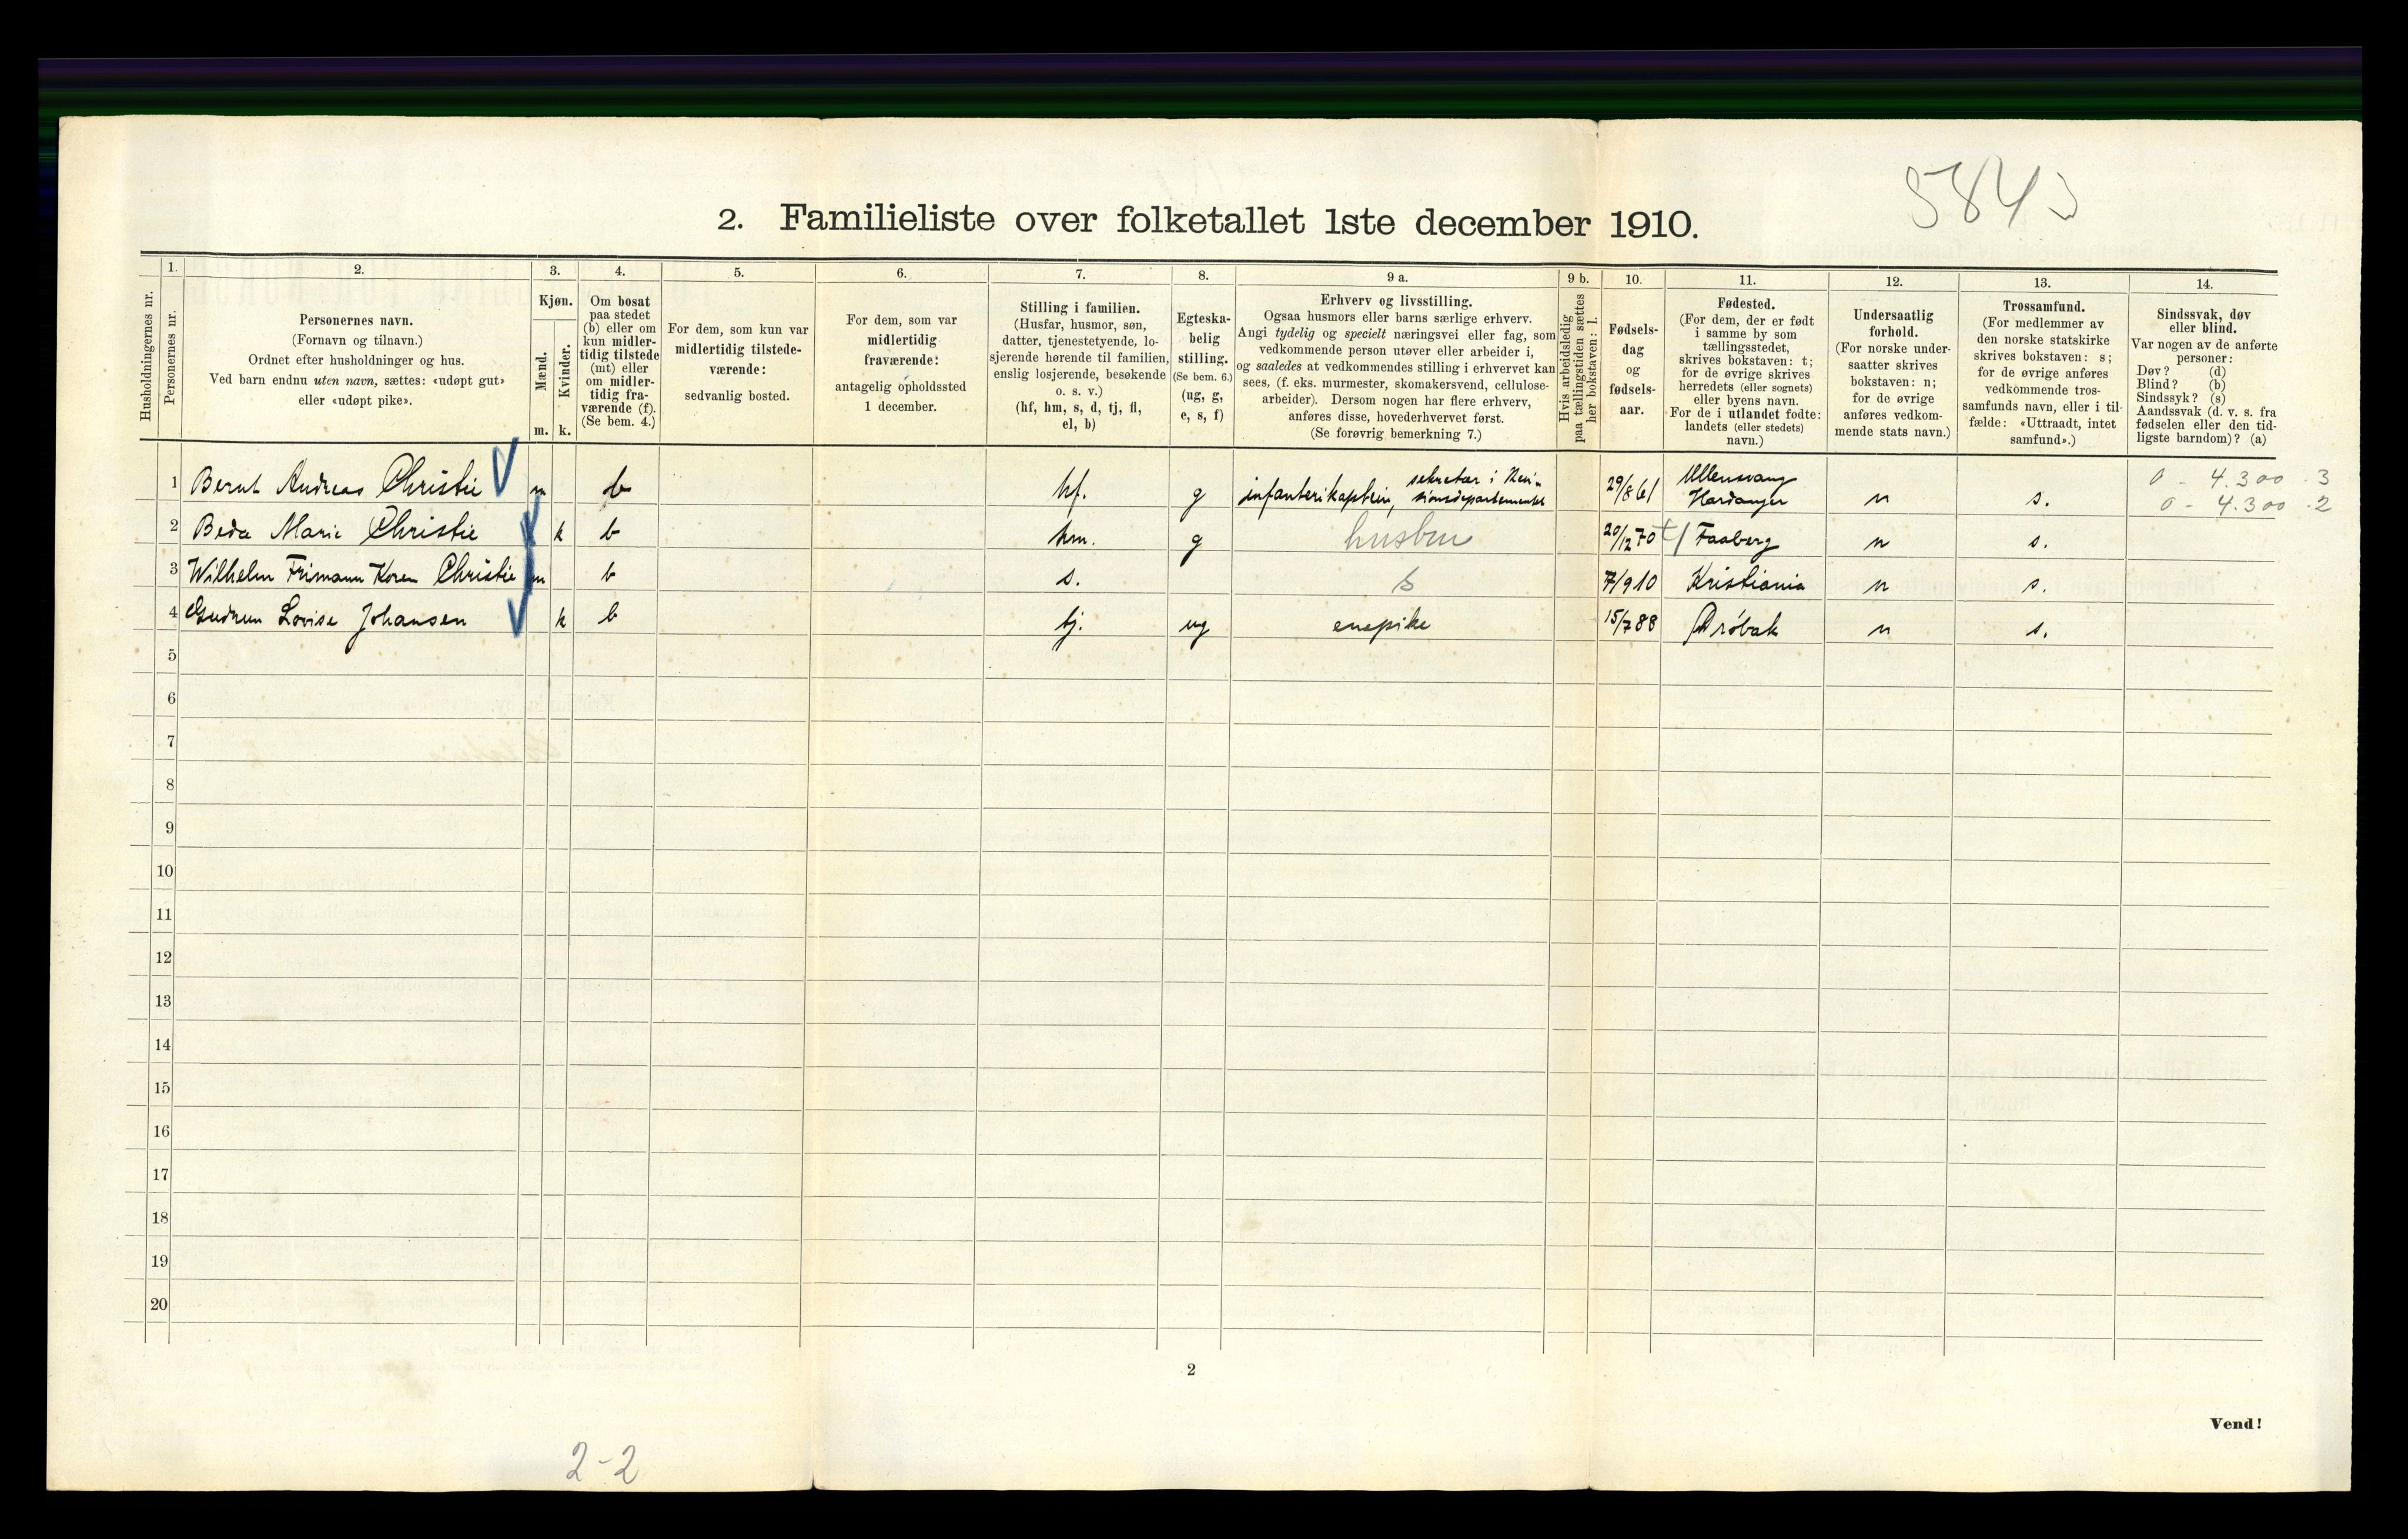 5843
2. Familieliste over folketallet 1ste december 1910.
Husholdningernes nr.
1.
Personernes nr.
2.
Personernes navn.
(Fornavn og tilnavn.)
Ordnet efter husholdninger og hus.
Ved barn endnu uten navn, sættes: «udøpt gut»
eller «udøpt pike».
3.
Kjøn.
Mænd.
Kvinder.
m. k.
4.
Om bosat
paa stedet
(b) eller om
kun midler-
tidig tilstede
(mt) eller
om midler-
tidig fra-
værende (f).
(Se bem. 4.)
5.
For dem, som kun var
midlertidig tilstede-
værende:
sedvanlig bosted.
6.
For dem, som var
midlertidig
fraværende:
antagelig opholdssted
1 december.
7.
Stilling i familien.
(Husfar, husmor, søn,
datter, tjenestetyende, lo-
sjerende hørende til familien,
enslig losjerende, besøkende
o. s. v.)
(hf, hm, s, d, tj, fl,
el, b)
8.
Egteska-
belig
stilling.
(Se bem. 6.)
(ug, g,
e, s, f)
9 a.
Erhverv og livsstilling.
Ogsaa husmors eller barns særlige erhverv.
Angi tydelig og specielt næringsvei eller fag, som
vedkommende person utøver eller arbeider i,
og saaledes at vedkommendes stilling i erhvervet kan
sees, (f. eks. murmester, skomakersvend, cellulose-
arbeider). Dersom nogen har flere erhverv,
anføres disse, hovederhvervet først.
(Se forøvrig bemerkning 7.)
9 b.
Hvis arbeidsledig
paa tællingstiden sættes
her bokstaven: l.
10.
Fødsels-
dag
og
fødsels-
aar.
11.
Fødested.
(For dem, der er født
i samme by som
tællingsstedet,
skrives bokstaven: t;
for de øvrige skrives
herredets (eller sognets)
eller byens navn.
For de i utlandet fødte:
landets (eller stedets)
navn.)
12.
Undersaatlig
forhold.
(For norske under-
saatter skrives
bokstaven: n;
for de øvrige
anføres vedkom-
mende stats navn.)
13.
Trossamfund.
(For medlemmer av
den norske statskirke
skrives bokstaven: s;
for de øvrige anføres
vedkommende tros-
samfunds navn, eller i til-
fælde: «Uttraadt, intet
samfund».)
14.
Sindssvak, døv
eller blind.
Var nogen av de anførte
personer:
Døv? (d)
Blind? (b)
Sindssyk? (s)
Aandssvak (d. v. s. fra
fødselen eller den tid-
ligste barndom)? (a)
1 Bernt Andreas Christie m b hf. g infanterikaptein, sekretær i Revi-
sionsdepartementet 29/8 61 Ullensvang
Hardanger n s. 0 - 4.300 . 3
0 - 4.300 . 2
2 Beda Marie Christie k b hm. g husbm 20/12 70 t/ Faaberg n s.
3 Wilhelm Frimann Koren Christie m b s. s 7/9 10 Kristiania n s.
4 Gudrun Lovise Johansen k b tj. ug enepike 15/7 88 Drøbak n s.
5
6
7
8
9
10
11
12
13
14
15
16
17
18
19
20
2
Vend!
2-2